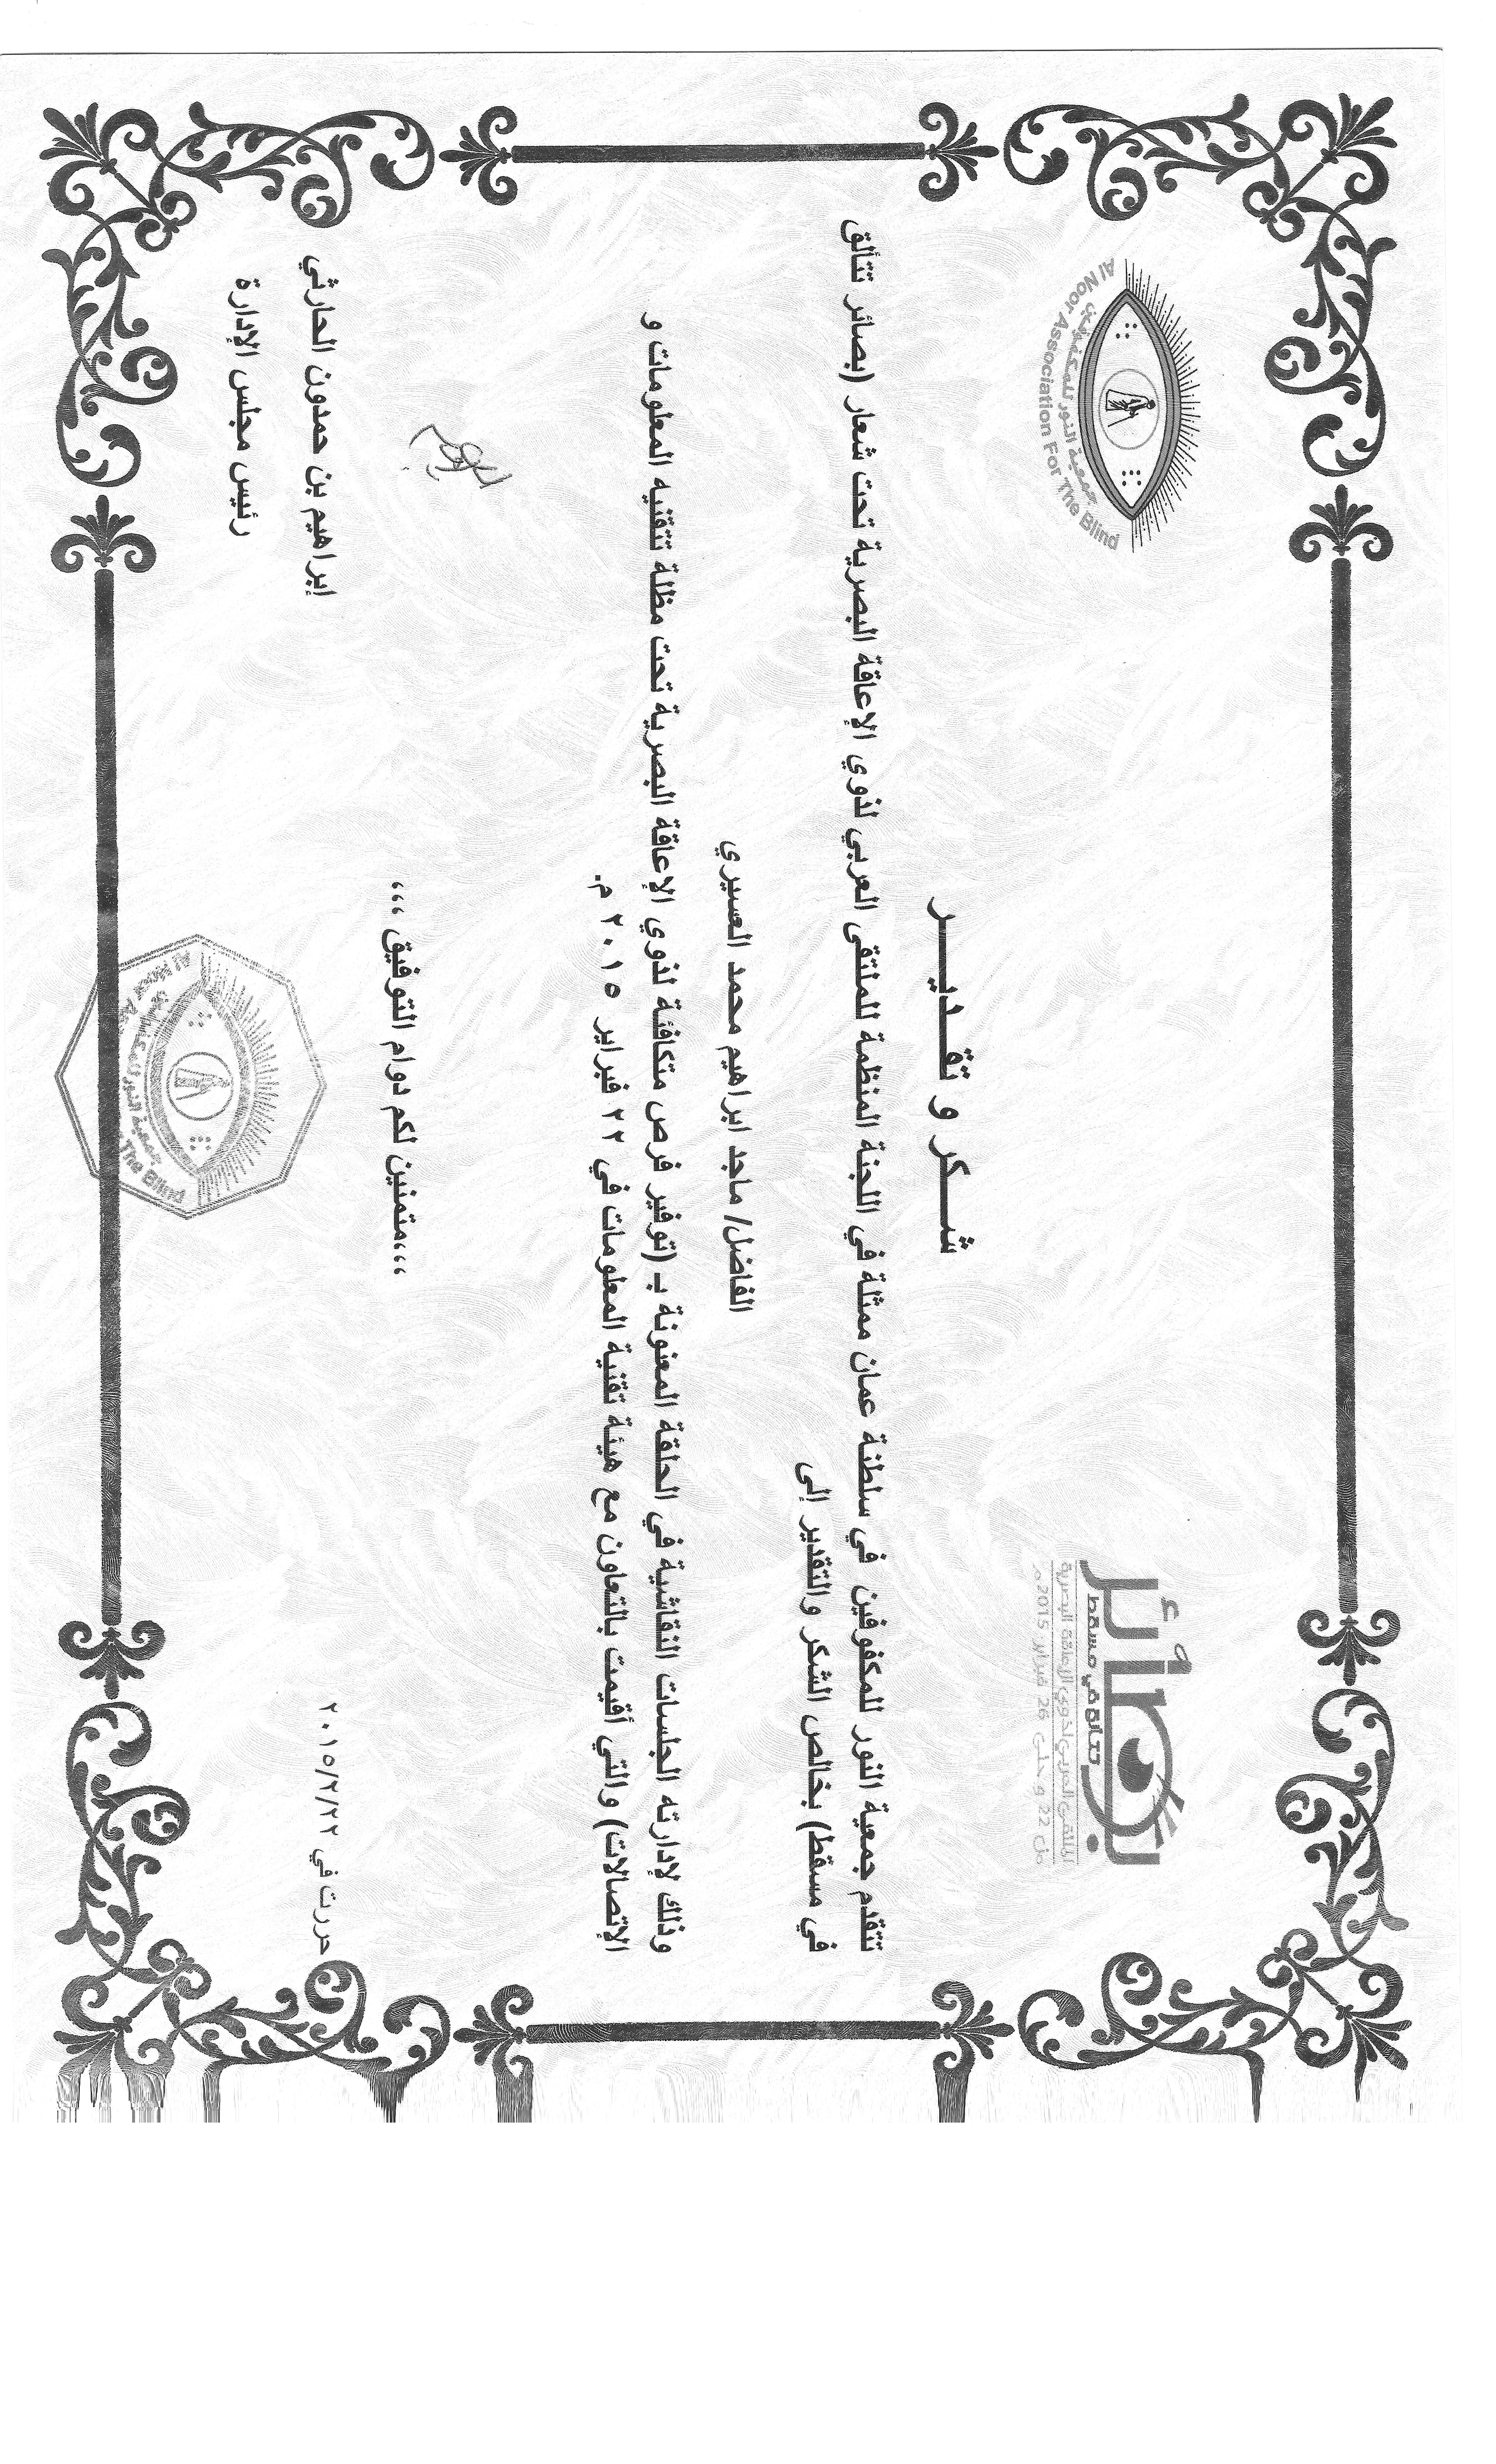 Al Noor Association For The Blind
جمعية النور للمكفوفين
بصائر
تتألق في مسقط
الملتقى العربي لذوي الإعاقة البصرية
من 22 وحتى 26 فبراير 2015م
شـــكر و تقـــديـــر
تتقدم جمعية النور للمكفوفين في سلطنة عمان ممثلة في اللجنة المنظمة للملتقى العربي لذوي الإعاقة البصرية تحت شعار (بصائر تتألق
في مسقط) بخالص الشكر والتقدير إلى
الفاضل/ ماجد ابراهيم محمد العسيري
وذلك لإدارته الجلسات النقاشية في الحلقة المعنونة بـ (توفير فرص متكافئة لذوي الإعاقة البصرية تحت مظلة تتقنيه المعلومات و
الإتصالات) والتي أقيمت بالتعاون مع هيئة تقنية المعلومات في ٢٢ فبراير ٢٠١٥ م.
،،،متمنين لكم دوام التوفيق ،،،
إبراهيم بن حمدون الحارثي
رئيس مجلس الإدارة
حررت في ٢٠١٥/٢/٢٢
جمعية النور للمكفوفين
The Blind